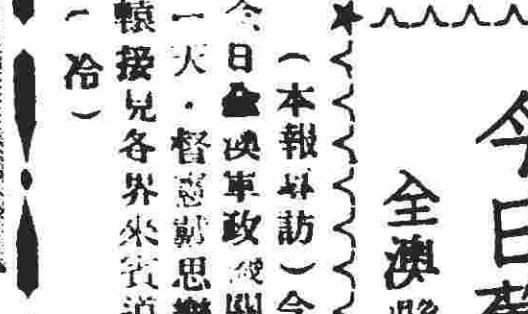 今日
全澳
（本報專訪）今
今日全澳軍政機關
一天．督憲戴思樂
轅接見各界來賓道
（冷）